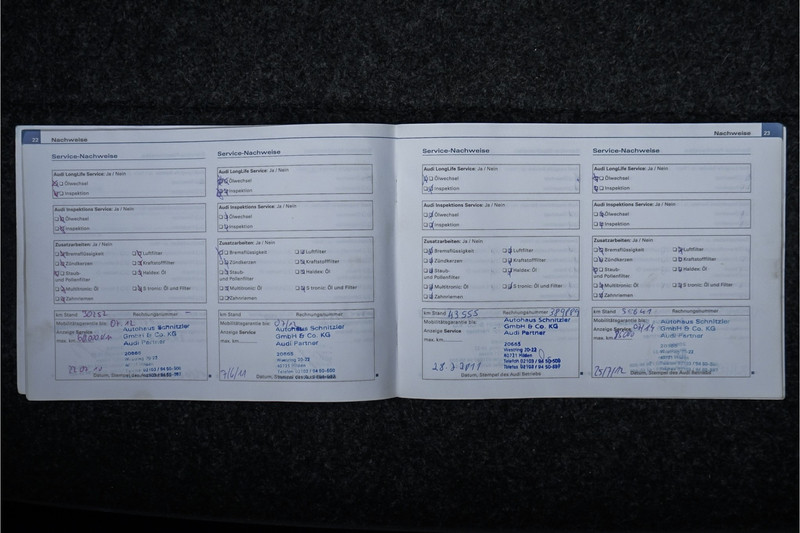 22 Nachweise
Service-Nachweise
Audi LongLife Service: Ja / Nein
Ölwechsel
Inspektion
Audi Inspektions Service: Ja / Nein
Ölwechsel
Inspektion
Zusatzarbeiten: Ja / Nein
Bremsflüssigkeit Luftfilter
Zündkerzen Kraftstofffilter
Staub- Haldex: Öl
und Pollenfilter
Multitronic: Öl S tronic: Öl und Filter
Zahnriemen
km Stand Rechnungsnummer
Mobilitätsgarantie bis:
Anzeige Service
max. km
Autohaus Schnitzler
GmbH & Co. KG
Audi Partner
20665
Service-Nachweise
Audi LongLife Service: Ja / Nein
Ölwechsel
Inspektion
Audi Inspektions Service: Ja / Nein
Ölwechsel
Inspektion
Zusatzarbeiten: Ja / Nein
Bremsflüssigkeit Luftfilter
Zündkerzen Kraftstofffilter
Staub- Haldex: Öl
und Pollenfilter
Multitronic: Öl S tronic: Öl und Filter
Zahnriemen
Mobilitätsgarantie bis:
Autohaus Schnitzler
GmbH & Co. KG
Audi Partner
20665
7/6/11
Datum, Stempel des Audi Betriebs
Nachweise 23
Service-Nachweise
Audi LongLife Service: Ja / Nein
Ölwechsel
Inspektion
Audi Inspektions Service: Ja / Nein
Ölwechsel
Inspektion
Zusatzarbeiten: Ja / Nein
Bremsflüssigkeit Luftfilter
Zündkerzen Kraftstofffilter
Staub- Haldex: Öl
und Pollenfilter
Multitronic: Öl S tronic: Öl und Filter
Zahnriemen
km Stand 43555 Rechnungsnummer
Mobilitätsgarantie bis:
Anzeige Service
max. km
Autohaus Schnitzler
GmbH & Co. KG
Audi Partner
20665
40721 Hilden
Datum, Stempel des Audi Betriebs
Service-Nachweise
Audi LongLife Service: Ja / Nein
Ölwechsel
Inspektion
Audi Inspektions Service: Ja / Nein
Ölwechsel
Inspektion
Zusatzarbeiten: Ja / Nein
Bremsflüssigkeit Luftfilter
Zündkerzen Kraftstofffilter
Staub- Haldex: Öl
und Pollenfilter
Multitronic: Öl S tronic: Öl und Filter
Zahnriemen
km Stand Rechnungsnummer
Mobilitätsgarantie bis:
Anzeige Service
max. km
Autohaus Schnitzler
GmbH & Co. KG
Audi Partner
Datum, Stempel des Audi Betriebs